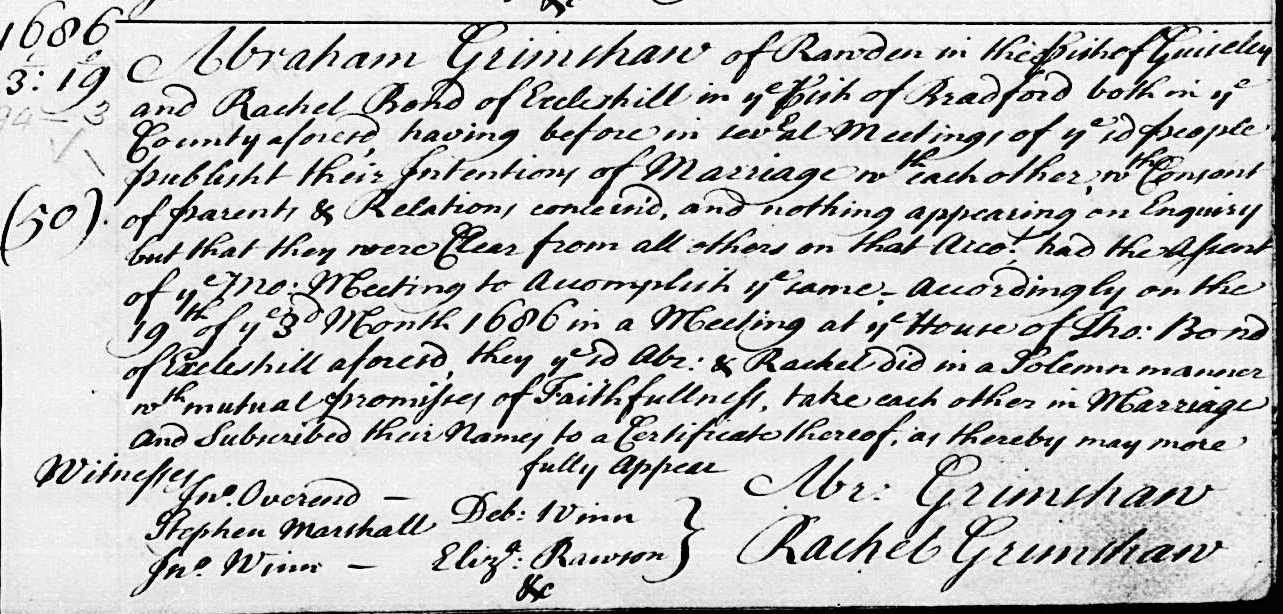 &c
1686
3: 19
(50).
Abraham Grimshaw of Rawden in the Pish of Guiseley
and Rachel Bond of Eccleshill in yͤ Pish of Bradford both in yͤ
County aforesd, having before in sevˡal Meetings of yͤ sd people
publisht their Intentions of Marriage wᵗʰ each other, wᵗʰ Consent
of parents & Relations concernd, and nothing appearing on Enquiry
but that they were Clear from all others on that Accoᵗ, had the Assent
of yͤ Mo: Meeting to Accomplish yͤ same,- Accordingly on the
19ᵗʰ of yͤ 3ᵈ Month 1686 in a Meeting at yͤ House of Tho: Bond
of Eccleshill aforesd, they yͤ sd Abr: & Rachel did in a Solemn manner
wᵗʰ mutual promises of Faithfullness, take each other in Marriage
And Subscribed their Names to a Certificate thereof, as thereby may more
fully Appear
Witnesses
Jnº. Overend —
Stephen Marshall
Jnº. Winn —
Deb: Winn
Elizᵃ: Rawson
&c
Abr: Grimshaw
Rachel Grimshaw